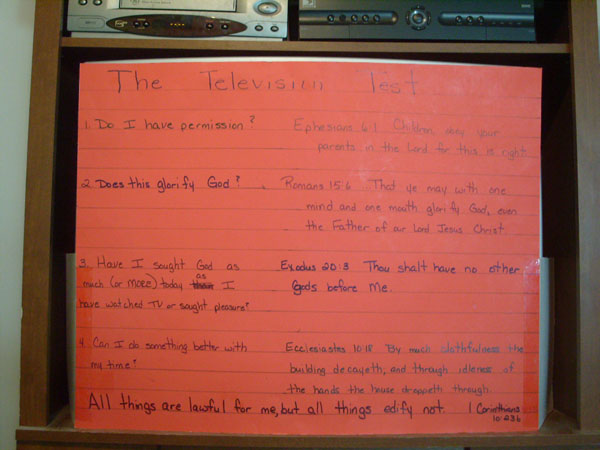 The Television Test
1. Do I have permission?
Ephesians 6:1 Children, obey your
parents in the Lord for this is right
2. Does this glorify God?
Romans 15:6 That ye may with one
mind and one mouth glorify God, even
the Father of our Lord Jesus Christ.
3. Have I sought God as
much (or more) today as I
have watched TV or sought pleasure?
Exodus 20:3 Thou shalt have no other
gods before me.
4. Can I do something better with
my time?
Ecclesiastes 10:18 By much slothfulness the
building decayeth, and through idleness of
the hands the house droppeth through.
All things are lawful for me, but all things edify not. 1 Corinthians
10:23b